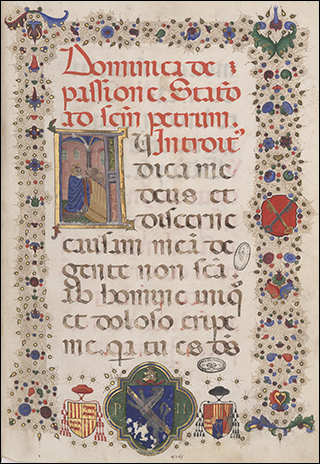 Dominica de
passione. Statō
ad scm̄ petrum.
Introit⁹
Iu
dica me
deus et
discerne
causam meā de
gente non scā.
ab homine iniq̄
et doloso eripe
me. q̄a tu es ds
P II